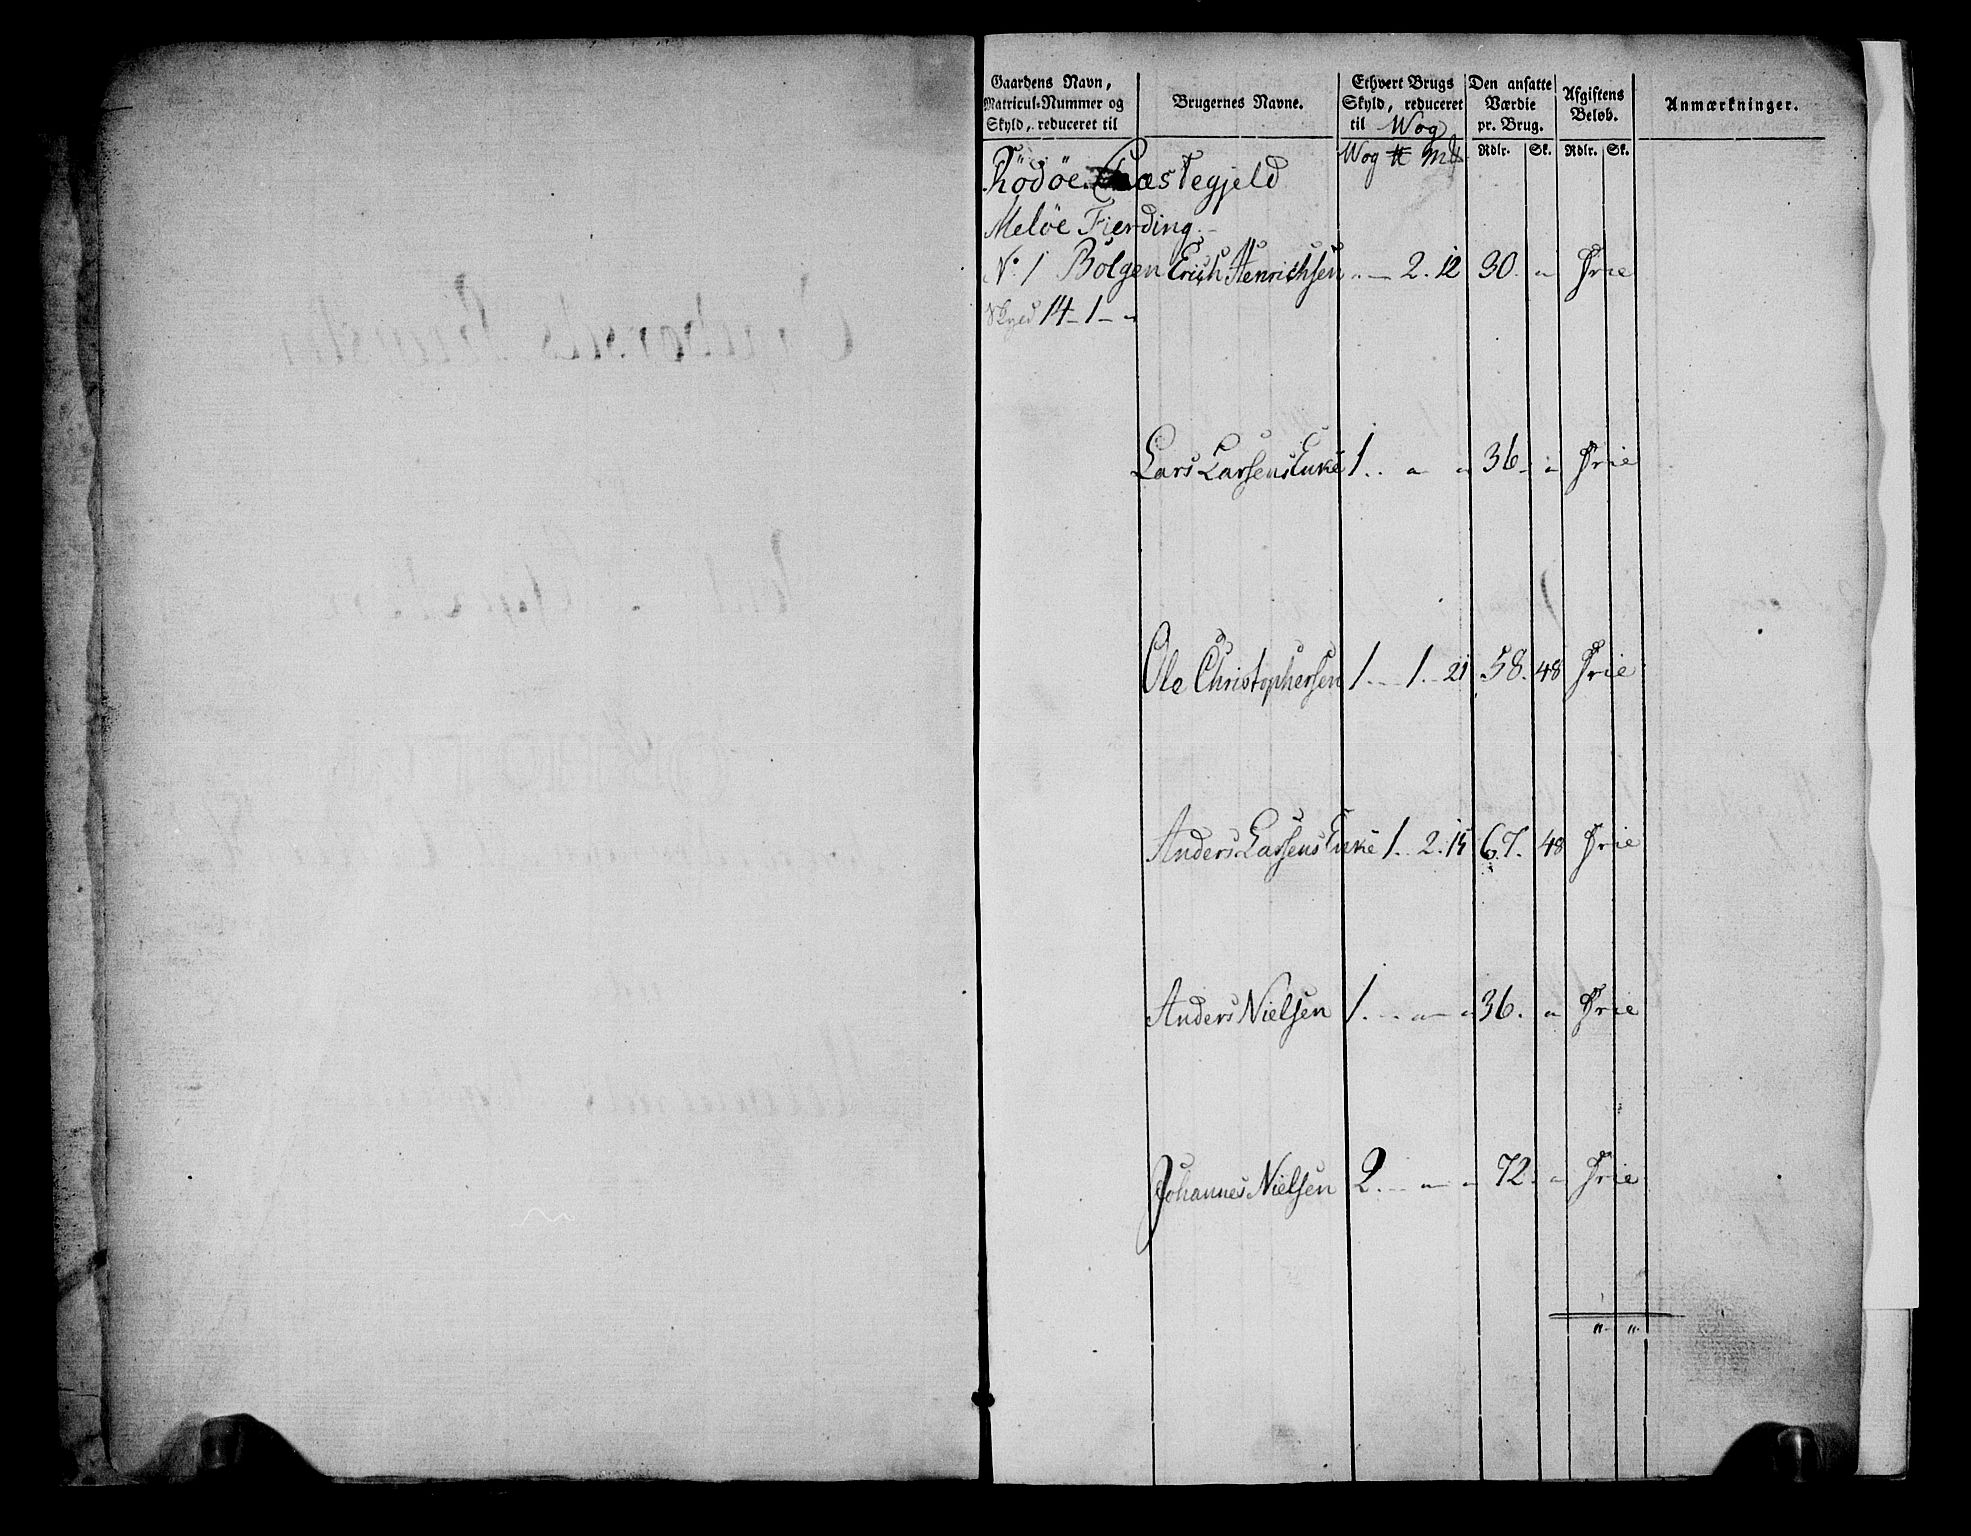 Gaardens Navn, Matricul-Nummer og Skyld, reduceret til
Brugernes Navne.
Ethvert Brugs Skyld, reduceret til Wog
Den ansatte Værdie pr. Brug.
Afgiftens Beløb.
Anmærkninger.
Wog ℔ Mk Rdlr. Sk. Rdlr. Sk.
Rödöe Præstegjeld
Melöe Fierding
No 1 Bolgen Erich Henrichsen " 2. 12 30. " Frie
Skyld 14 - 1 - "
Lars Larsens Enke 1. " " 36. " Frie
Ole Christophersen 1. 1. 21 58. 48 Frie
Anders Larsens Enke 1. 2. 15 67. 48 Frie
Anders Nielsen 1. " " 36. " Frie
Johannes Nielsen 2. " " 72. " Frie
" "